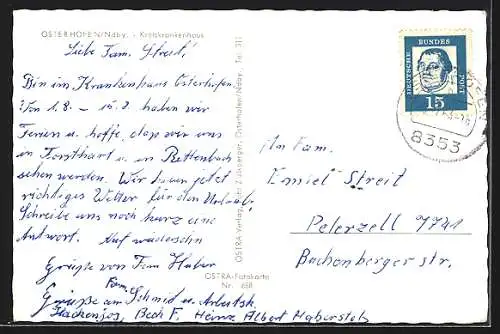 OSTERHOFEN/Ndby. - Kreiskrankenhaus
Liebe Fam. Streit,
Bin im Krankenhaus Osterhofen
Von 1.8. - 15.9. haben wir
Ferien u. hoffe, dass wir uns
in Forsthart u. in Rettenbach
sehen werden. Wir haben jetzt
richtiges Wetter für den Urlaub.
Schreibe uns noch kurz eine
Antwort. Auf wiedersehn
Grüsse von Fam Huber
Fam.
Grüsse am Schmid u.
Bech F. Heinz Albert
OSTRA-Fotokarte
Nr.
OSTRA Verlag, Osterhofen/Ndby. Tel. 311
DEUTSCHE BUNDESPOST
15
8353
An Fam.
Emiel Streit
Peterzell 7741
Bachenberger str.